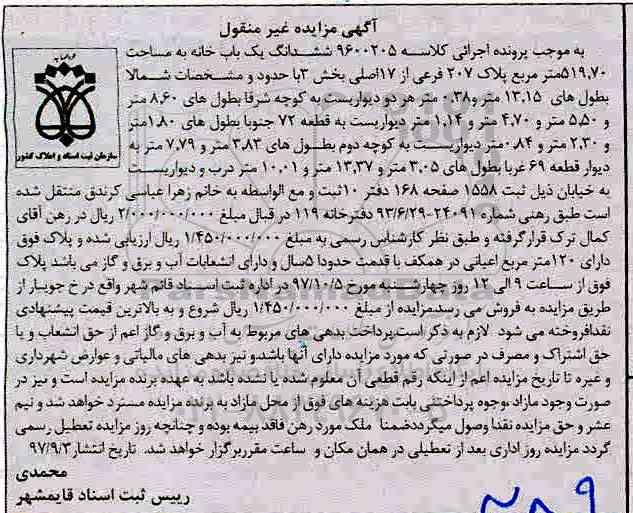 آگهی مزایده غیر منقول
به موجب پرونده اجرائی کلاسه ۹۶۰۰۲۰۵ ششدانگ یک باب خانه به مساحت
۵۱۹,۷۰متر مربع پلاک ۲۰۷ فرعی از ۱۷اصلی بخش ۳با حدود و مشخصات شمالا
بطول های ۱۳,۱۵ متر و۰,۳۸ متر هر دو دیواریست به کوچه شرقا بطول های ۸,۶۰ متر
و ۵,۵۰ متر و ۴,۷۰ متر و ۱,۱۴ متر دیواریست به قطعه ۷۲ جنوبا بطول های ۱,۸۰متر
و ۲,۳۰ متر و۰,۸۴ متر دیواریست به کوچه دوم بطول های ۳,۸۳ متر و ۷,۷۹ متر به
دیوار قطعه ۶۹ غربا بطول های ۳,۰۵ متر و ۱۳,۳۷ متر و ۱۰,۰۱ متر درب و دیواریست
به خیابان ذیل ثبت ۱۵۵۸ صفحه ۱۶۸ دفتر ۱۰ثبت و مع الواسطه به خانم زهرا عباسی کرندق منتقل شده
است طبق رهنی شماره ۲۴۰۹۱-۹۳/۶/۲۹ دفترخانه ۱۱۹ در قبال مبلغ ۲/۰۰۰/۰۰۰/۰۰۰ ریال در رهن آقای
کمال ترک قرارگرفته و طبق نظر کارشناس رسمی به مبلغ ۱/۴۵۰/۰۰۰/۰۰۰ ریال ارزیابی شده و پلاک فوق
دارای ۱۲۰متر مربع اعیانی در همکف با قدمت حدودا ۵سال و دارای انشعابات آب و برق و گاز می باشد پلاک
فوق از ساعت ۹ الی ۱۲ روز چهارشنبه مورخ ۹۷/۱۰/۵ در اداره ثبت اسناد قائم شهر واقع در خ جویبار از
طریق مزایده به فروش می رسدمزایده از مبلغ ۱/۴۵۰/۰۰۰/۰۰۰ ریال شروع و به بالاترین قیمت پیشنهادی
نقدافروخته می شود لازم به ذکر است پرداخت بدهی های مربوط به آب و برق و گاز اعم از حق انشعاب و یا
حق اشتراک و مصرف در صورتی که مورد مزایده دارای آنها باشدو نیز بدهی های مالیاتی و عوارض شهرداری
و غیره تا تاریخ مزایده اعم از اینکه رقم قطعی آن معلوم شده یا نشده باشد به عهده برنده مزایده است و نیز در
صورت وجود مازاد ،وجوه پرداختنی بابت هزینه های فوق از محل مازاد به برنده مزایده مسترد خواهد شد و نیم
عشر و حق مزایده نقدا وصول میگرددضمنا ملک مورد رهن فاقد بیمه بوده و چنانچه روز مزایده تعطیل رسمی
گردد مزایده روز اداری بعد از تعطیلی در همان مکان و ساعت مقرربرگزار خواهد شد. تاریخ انتشار۹۷/۹/۳
محمدی
رییس ثبت اسناد قایمشهر
سازمان ثبت اسناد و املاک کشور